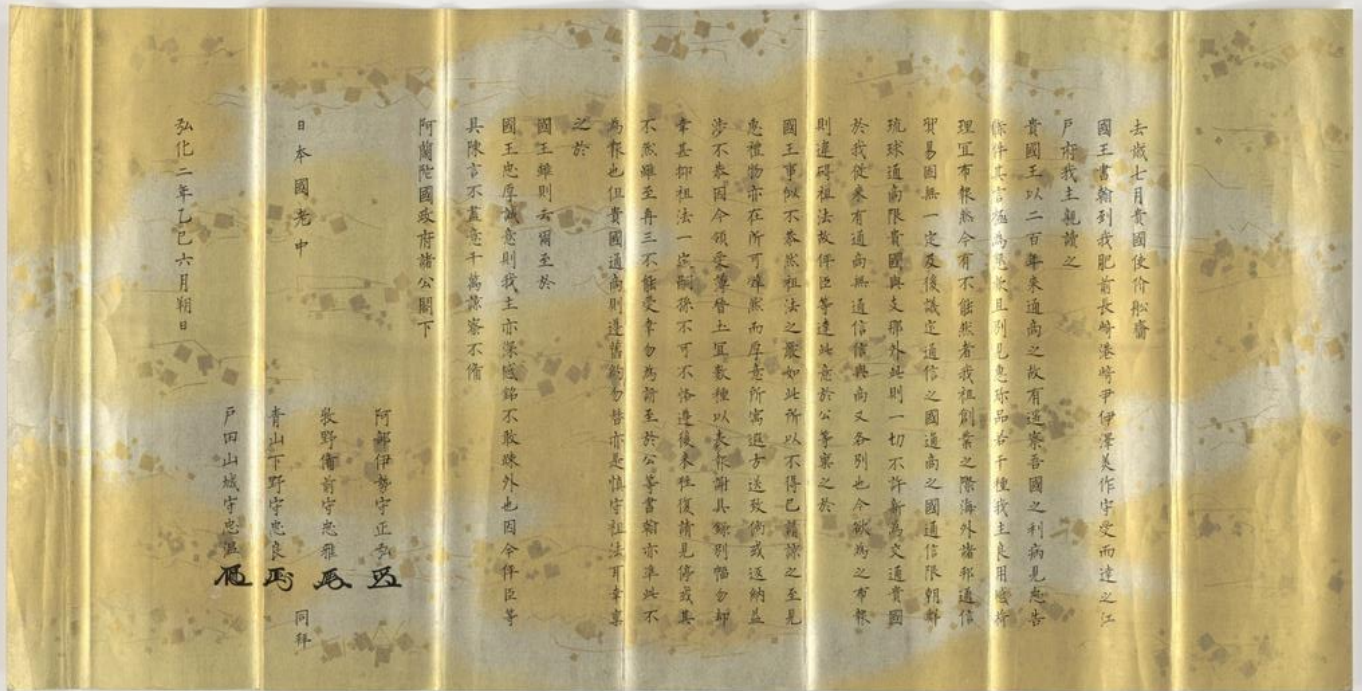 去歲七月貴國使价船齎
國王書翰到我肥前長崎港崎尹伊澤美作守受而達之江
戶府我主親讀之
貴國王以二百年來通商之故有遙察吾國之利病見忠告
條件其言極為懇款且別見惠珍品若干種我主良用感荷
理宜布報然今有不能然者我祖創業之際海外諸邦通信
貿易固無一定及後議定通信之國通商之國通信限朝鮮
琉球通商限貴國與支那外此則一切不許新為交通貴國
於我從來有通商無通信信與商又各別也今欲為之布報
則違碍祖法故俾臣等達此意於公等稟之於
國王事似不恭然祖法之嚴如此所以不得已請諒之至見
惠禮物亦在所可辭然而厚意所寓遠方送致倘或返納益
涉不恭因今領受薄晉土宜數種以表報謝具錄別幅勿却
幸甚抑祖法一定嗣孫不可不恪遵後來往復請見停或其
不然雖至再三不能受幸勿為訝至於公等書翰亦準此不
為報也但貴國通商則遵舊約勿替亦是慎守祖法耳幸稟
之於
國王雖則云爾至於
國王忠厚誠意則我主亦深感銘不敢踈外也因令俾臣等
具陳言不盡意千萬諒察不備
阿蘭陀國政府諸公閣下
阿部伊勢守正弘
牧野備前守忠雅
青山下野守忠良
戶田山城守忠温
同拜
日本國老中
弘化二年乙巳六月朔日